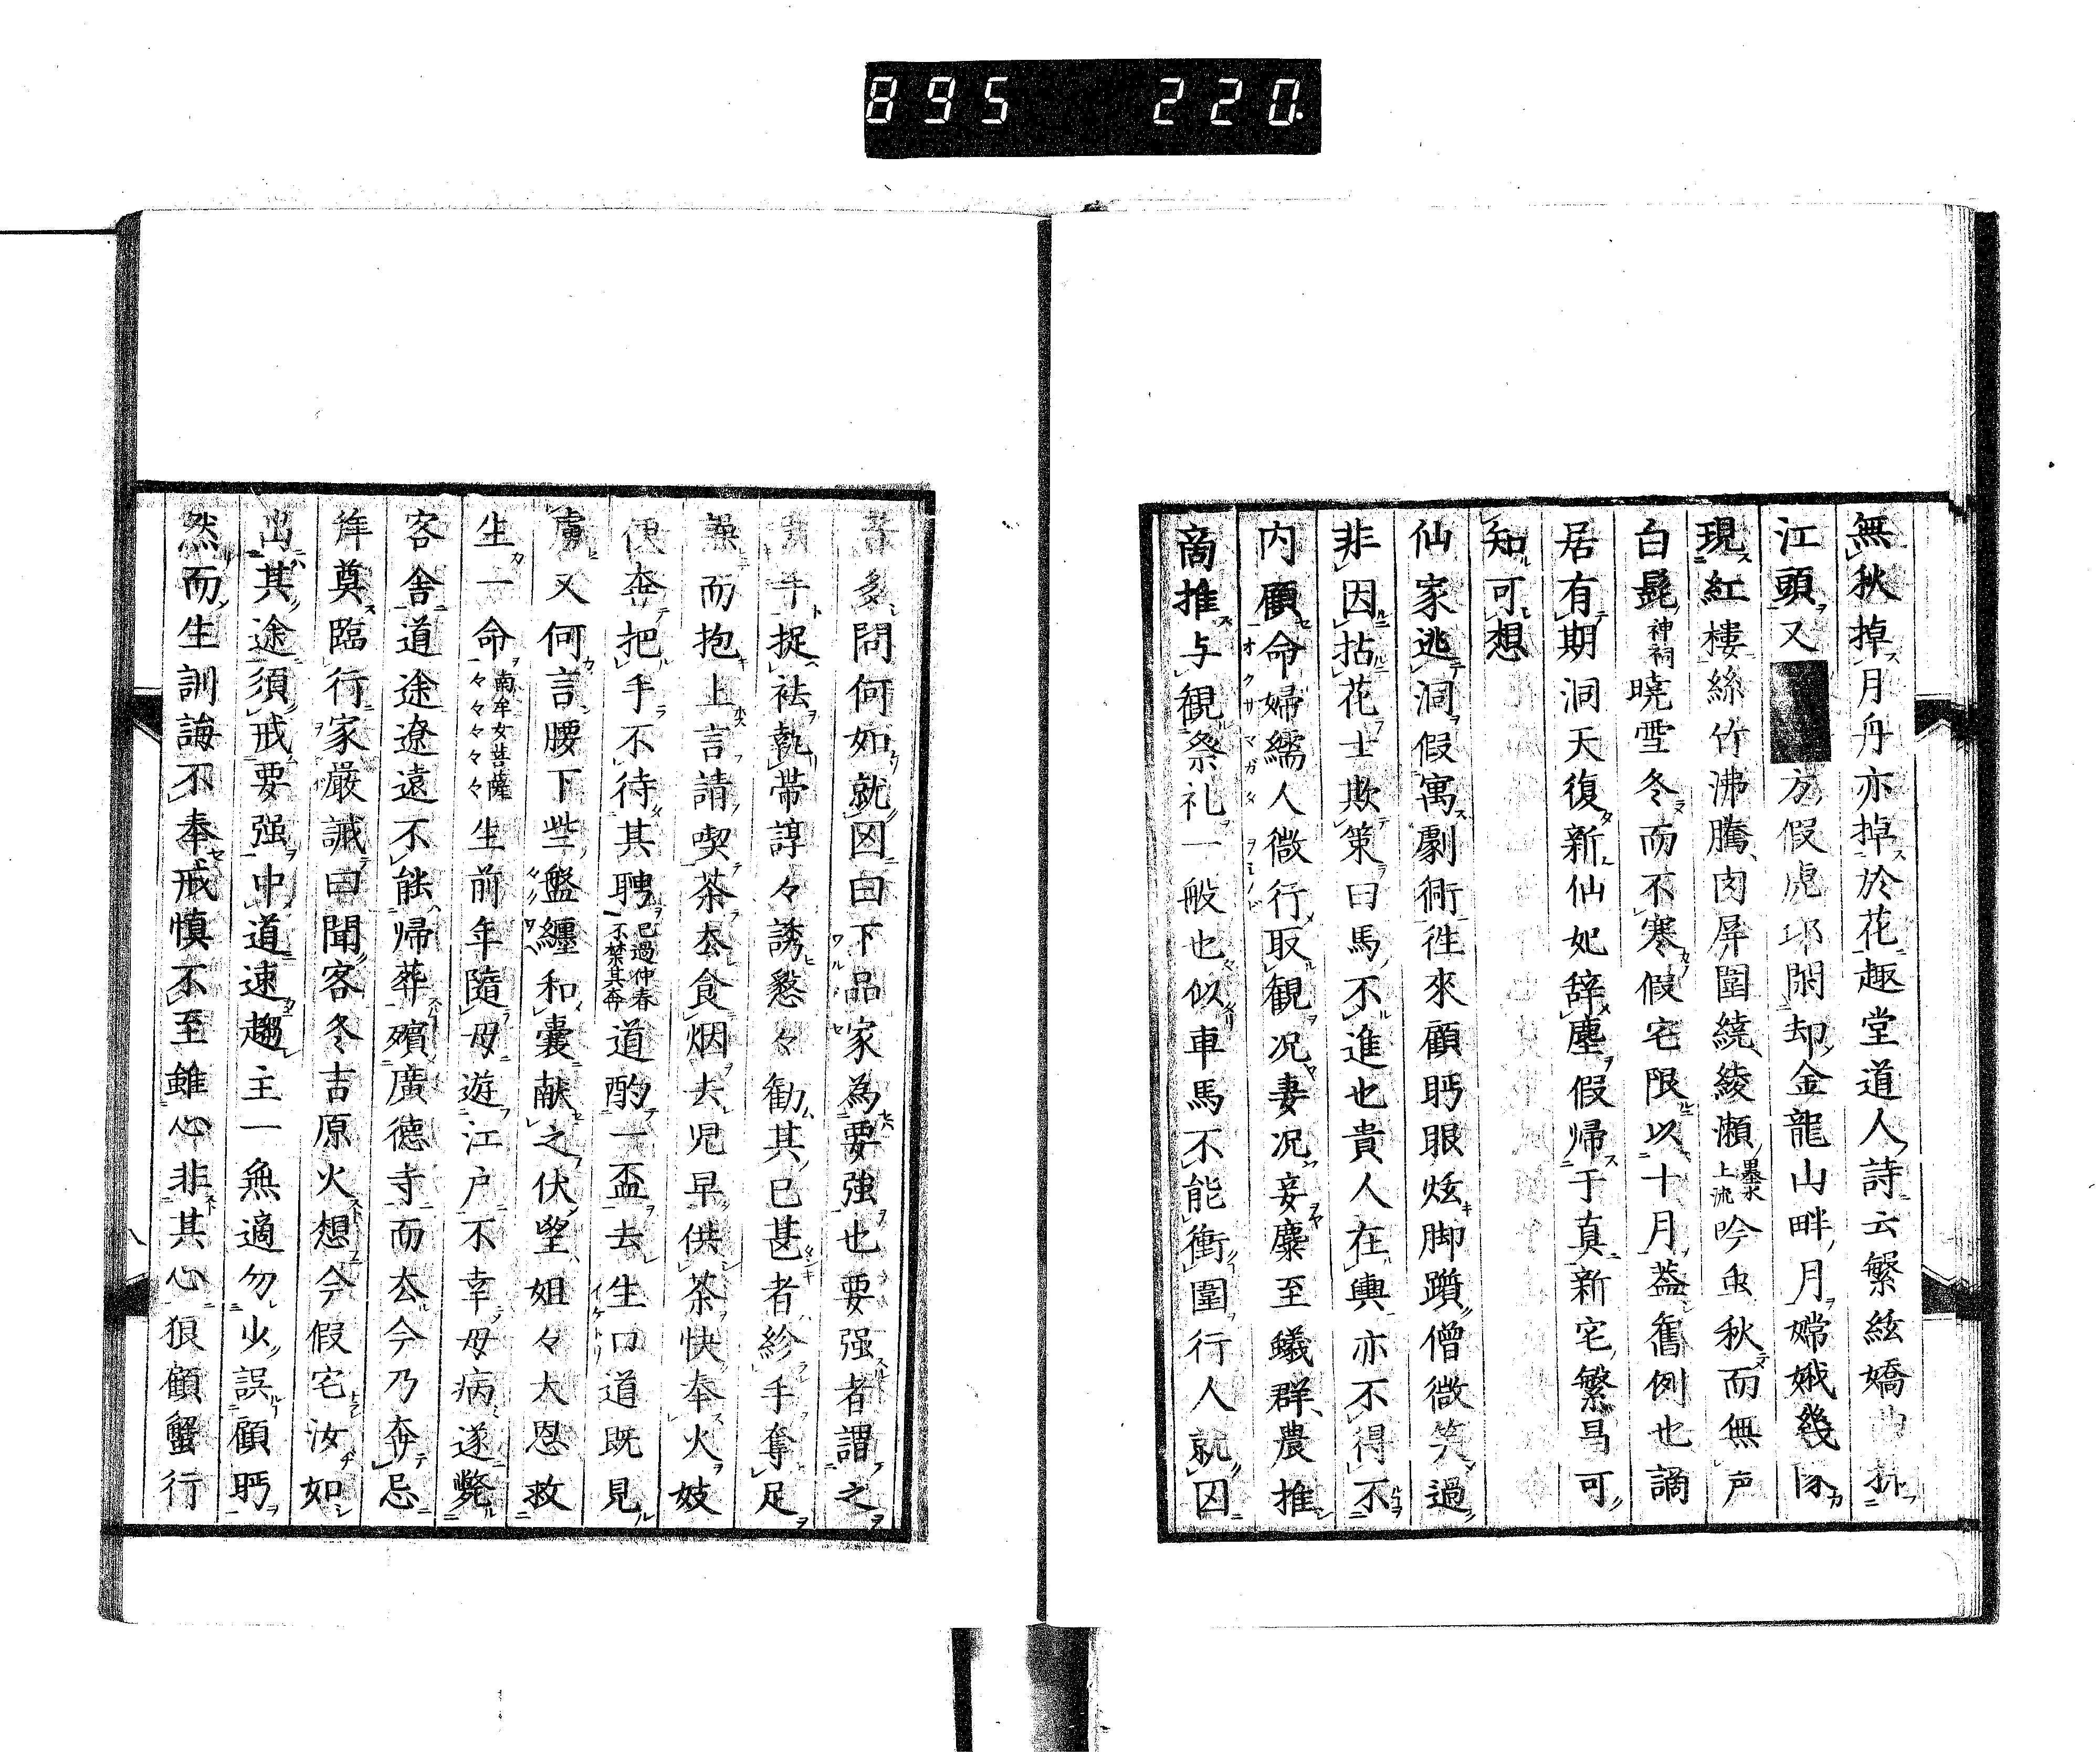 895 220
無秋掉月舟亦掉於花趣堂道人詩云繁絃嬌 折
江頭又 方假虎邱閑却金龍山畔月嫦娥幾隊
現紅樓絲竹沸騰肉屏圍繞綾瀬墨水上流吟虫秋而無声
白髭神祠暁雪冬而不寒假宅限以十月蓋舊例也謫
居有期洞天復新仙妃辞塵假帰于真新宅繁昌可
知可想
仙家逃洞假寓劇衕徃來顧眄眼炫脚躓僧微笑過
非因拈花士欺策曰馬不進也貴人在輿亦不得不
内顧命婦繻人微行取観况妻况妾麋至蟻群農推
商推与観祭礼一般也似車馬不能衝圍行人就囚
者多問何如就囚曰下品家為要強也要强者謂之
手捉袪執帯諄々誘慇々勧其已甚者紾手奪足
而抱上言請喫茶去食烟去児早供茶快奉火妓
便奔把手不待其聘已過仲春不禁其奔道酌一盃去生口道既見
虜又何言腰下些盤纏和囊献之伏望姐々大恩救
生一命南牟女菩薩々々々々々生前年隨母遊江戸不幸母病遂斃
客舎道途遼遠不能帰葬殯廣徳寺而去今乃奔忌
奠臨行家厳誡曰聞客冬吉原火想今假宅汝如
出其途須戒要强中道速趨主一無適勿少誤顧眄
然而生訓誨不奉戒慎不至雖心非其心狼顧蟹行